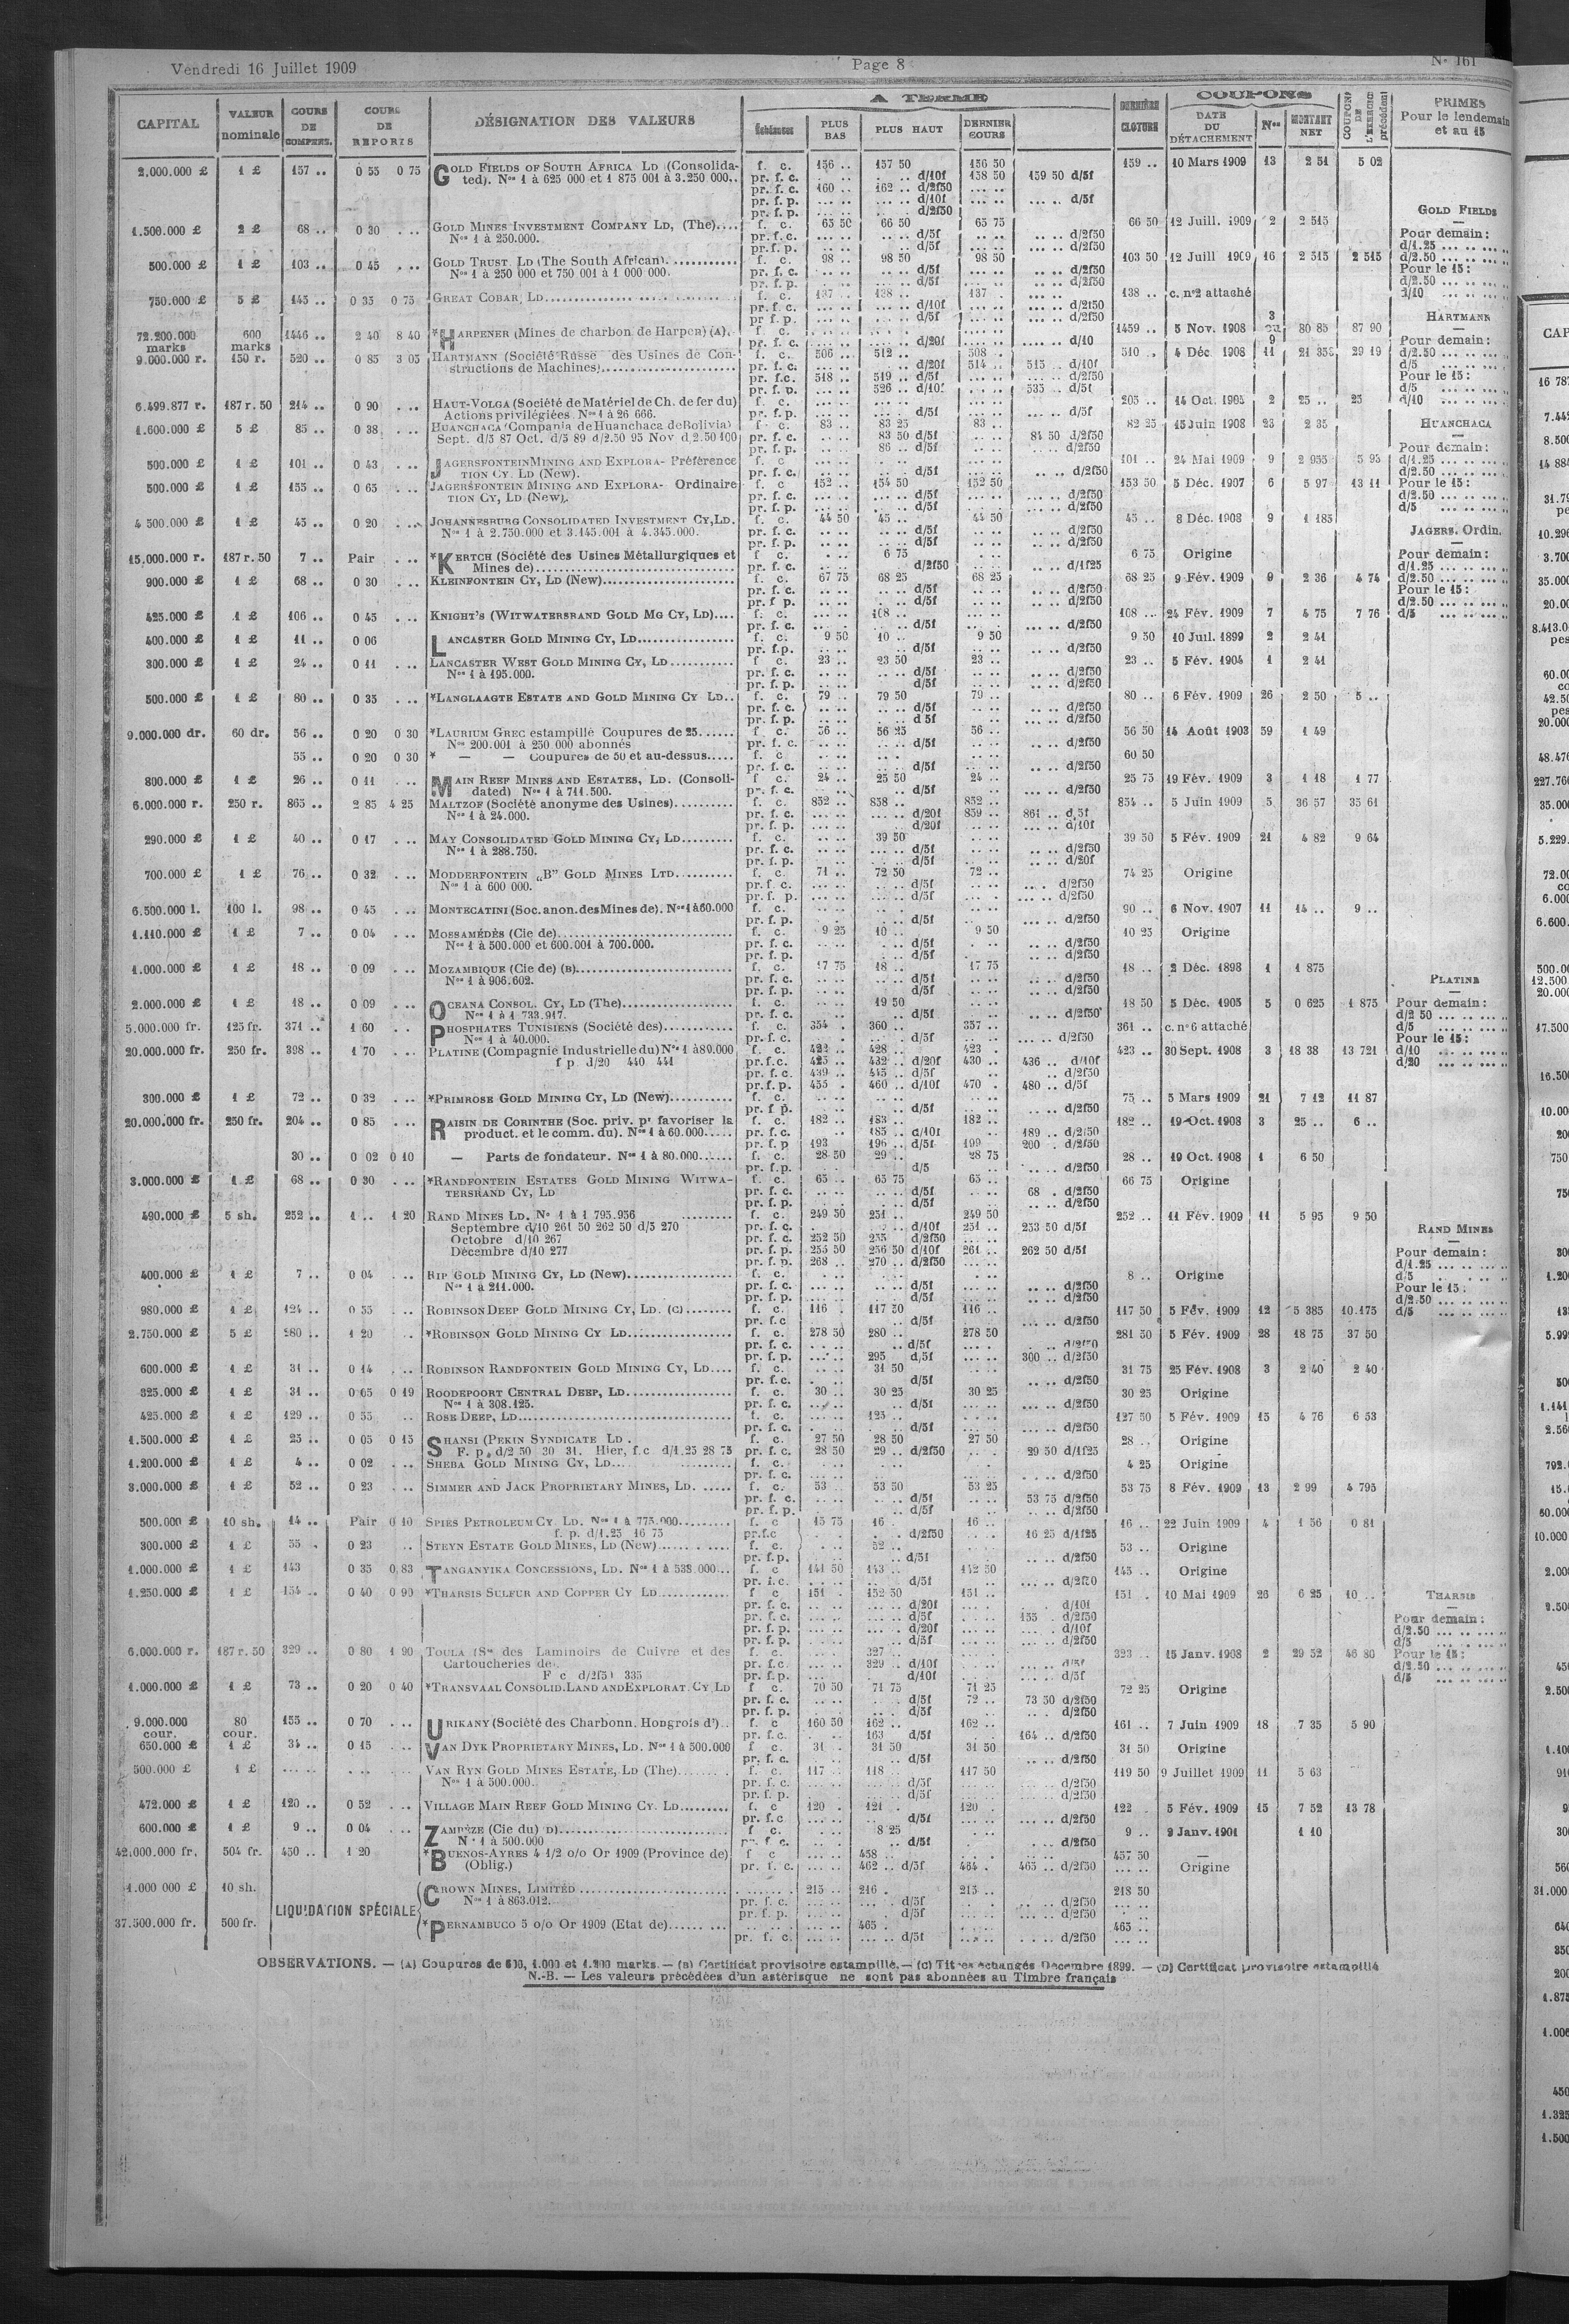 Vendredi 16 Juillet 1909 Page 8 N° 161
CAPITAL VALEUR nominale COURS DE COMPENS. COURS DE REPORTS DÉSIGNATION DES VALEURS A TERME Échéances PLUS BAS PLUS HAUT DERNIER COURS DERNIÈRE CLOTURE COUPONS DATE DU DÉTACHEMENT Nos MONTANT NET COUPONS DE L'EXERCICE précédent PRIMES Pour le lendemain et au 15
2.000.000 £ 1 £ 157 .. 0 55 0 75 GOLD FIELDS OF SOUTH AFRICA LD (Consolida- f. c. 156 .. 157 50 156 50 159 .. 10 Mars 1909 13 2 51 5 02
ted). Nos 1 à 625 000 et 1 875 001 à 3.250 000.. pr. f. c. d/10f 158 50 159 50 d/5f
pr. f. c. 160 .. 162 .. d/2f50
pr. f. p. d/10f d/5f
pr. f. p. d/2f50
GOLD FIELDS
1.500.000 £ 2 £ 68 .. 0 30 GOLD MINES INVESTMENT COMPANY LD, (The).... f. c. 65 50 66 50 65 75 66 50 12 Juill. 1909 2 2 515
Nos 1 à 250.000. pr. f. c. d/5f d/2f50 Pour demain :
pr. f. p. d/5f d/2f50 d/1.25
500.000 £ 1 £ 103 .. 0 45 GOLD TRUST LD (The South African) f. c. 98 .. 98 50 98 50 103 50 12 Juill 1909 16 2 515 2 515 d/2.50
Nos 1 à 250 000 et 750 001 à 1 000 000. pr. f. c. d/5f d/2f50 Pour le 15 :
pr. f. p. d/5f d/2f50 d/2.50
750.000 £ 5 £ 145 .. 0 35 0 75 GREAT COBAR, LD f. c. 137 .. 138 .. 137 . 138 .. c. n°2 attaché d/10
pr. f. c. d/10f d/2f50
pr f. p. d/5f d/2f50 HARTMANN
72.200.000 marks 600 marks 1446 .. 2 40 8 40 *HARPENER (Mines de charbon de Harpen) (A). f. c. 1459 .. 5 Nov. 1908 80 85 87 90
pr. f. c. d/20f d/10 Pour demain :
9.000.000 r. 150 r. 520 .. 0 85 3 05 HARTMANN (Société Russe des Usines de Con- f. c. 506 .. 512 .. 508 . 510 .. 4 Déc. 1908 11 29 19 d/2.50
structions de Machines) pr. f. c. d/20f 514 .. 515 .. d/10f d/5
pr. f.c. 518 .. 519 .. d/5f d/2f50 Pour le 15 :
pr. f. p. 526 .. d/10f 535 .. d/5f d/5
6.499.877 r. 187 r. 50 214 .. 0 90 HAUT-VOLGA (Société de Matériel de Ch. de fer du) f. c. 205 .. 14 Oct. 1905 2 25 .. 25 d/10
Actions privilégiées. Nos 1 à 26 666. pr. f. p. d/5f d/5f
1.600.000 £ 5 £ 85 .. 0 38 HUANCHACA (Compania de Huanchaca de Bolivia) f. c. 83 .. 83 25 83 .. 82 25 15 Juin 1908 23 2 35 HUANCHACA
Sept. d/5 87 Oct. d/5 89 d/2.50 95 Nov d 2.50 100 pr. f. c. 83 50 d/5f 84 50 d/2f50
pr. f. p. 86 .. d/5f d/2f50 Pour demain :
500.000 £ 1 £ 101 .. 0 43 JAGERSFONTEIN MINING AND EXPLORA- Préférence f. c 101 .. 24 Mai 1909 9 2 955 5 95 d/1.25
TION CY. LD (New). pr. f. c. d/5f d/2f50 d/2.50
500.000 £ 1 £ 155 .. 0 65 JAGERSFONTEIN MINING AND EXPLORA- Ordinaire f. c 152 .. 154 50 152 50 153 50 5 Déc. 1907 6 5 97 13 11 Pour le 15 :
TION CY, LD (New). pr. f. c. d/5f d/2f50 d/2.50
pr. f. p. d/5f d/2f50 d/5
4 500.000 £ 1 £ 45 .. 0 20 JOHANNESBURG CONSOLIDATED INVESTMENT CY, LD. f. c. 44 50 45 .. 44 50 45 .. 8 Déc. 1908 9 1 185
Nos 1 à 2.750.000 et 3.145.001 à 4.345.000. pr. f. c. d/5f d/2f50 JAGERS. Ordin.
pr. f. p. d/5f d/2f50
15.000.000 r. 187 r. 50 7 .. Pair *KERTCH (Société des Usines Métallurgiques et f. c. 6 75 6 75 Origine Pour demain :
Mines de) pr. f. c. d/2f50 d/1f25 d/1.25
900.000 £ 1 £ 68 .. 0 30 KLEINFONTEIN CY, LD (New) f. c. 67 75 68 25 68 25 68 25 9 Fév. 1909 9 2 36 4 74 d/2.50
pr. f. c. d/5f d/2f50 Pour le 15 :
pr. f p. d/5f d/2f50 d/2.50
425.000 £ 1 £ 106 .. 0 45 KNIGHT'S (WITWATERSRAND GOLD MG CY, LD).... f. c. 108 .. 108 .. 24 Fév. 1909 7 4 75 7 76 d/5
pr. f. c. d/5f d/2f50
400.000 £ 1 £ 11 .. 0 06 LANCASTER GOLD MINING CY, LD f. c. 9 50 10 .. 9 50 9 50 10 Juil. 1899 2 2 41
pr. f.p. d/5f d/2f50
300.000 £ 1 £ 24 .. 0 11 LANCASTER WEST GOLD MINING CY, LD f c. 23 .. 23 50 23 .. 23 .. 5 Fév. 1904 1 2 41
Nos 1 à 195.000. pr. f. c. d/5f d/2f50
pr. f. p. d/5f d/2f50
500.000 £ 1 £ 80 .. 0 35 *LANGLAAGTE ESTATE AND GOLD MINING CY LD.. f. c. 79 .. 79 50 79 .. 80 .. 6 Fév. 1909 26 2 50 5 ..
pr. f. c. d/5f d/2f50
pr. f. p. d 5f d/2f50
9.000.000 dr. 60 dr. 56 .. 0 20 0 30 *LAURIUM GREC estampillé Coupures de 25 f. c. 56 .. 56 25 56 .. 56 50 14 Août 1903 59 1 49
Nos 200.001 à 250 000 abonnés pr. f. c. d/5f d/2f50
55 .. 0 20 0 30 * — — Coupures de 50 et au-dessus f. c 60 50
pr. f. c. d/5f d/2f50
800.000 £ 1 £ 26 .. 0 11 MAIN REEF MINES AND ESTATES, LD. (Consoli- f c. 24 .. 25 50 24 .. 25 75 19 Fév. 1909 3 1 18 1 77
dated) Nos 1 à 711.500. pr. f. c. d/5f d/2f50
6.000.000 r. 250 r. 865 .. 2 85 4 25 MALTZOF (Société anonyme des Usines) f. c. 852 .. 858 .. 852 .. 854 .. 5 Juin 1909 5 36 57 35 61
Nos 1 à 24.000. pr. f. c. d/20f 859 .. 861 .. d/5f
pr. f. p. d/20f d/10f
290.000 £ 1 £ 40 .. 0 17 MAY CONSOLIDATED GOLD MINING CY, LD f. c. 39 50 39 50 5 Fév. 1909 21 4 82 9 64
Nos 1 à 288.750. pr. f. c. d/5f d/2f50
pr. f. p. d/5f d/20f
700.000 £ 1 £ 76 .. 0 32 MODDERFONTEIN „B” GOLD MINES LTD f. c. 71 .. 72 50 72 .. 74 25 Origine
Nos 1 à 600 000. pr. f. c. d/5f d/2f50
pr. f. p. d/5f d/2f50
6.500.000 l. 100 l. 98 .. 0 45 MONTECATINI (Soc. anon. des Mines de). Nos 1 à 60.000 f. c. 90 .. 6 Nov. 1907 11 14 .. 9 ..
pr. f. p. d/5f d/2f50
1.110.000 £ 1 £ 7 .. 0 04 MOSSAMÉDÈS (Cie de) f. c. 9 25 10 .. 9 50 10 25 Origine
Nos 1 à 500.000 et 600.001 à 700.000. pr. f. c. d/5f d/2f50
pr. f. p. d/5f d/2f50
1.000.000 £ 1 £ 18 .. 0 09 MOZAMBIQUE (Cie de) (B) f. c. 17 75 18 .. 17 75 18 .. 2 Déc. 1898 1 1 875
Nos 1 à 906.602. pr. f. c. d/5f d/2f50 PLATINE
pr. f. p. d/5f d/2f50
2.000.000 £ 1 £ 18 .. 0 09 OCEANA CONSOL. CY, LD (The) f. c. 19 50 18 50 5 Déc. 1905 5 0 625 1 875 Pour demain :
Nos 1 à 1 733.917. pr. f. c. d/5f d/2f50 d/2 50
5.000.000 fr. 125 fr. 371 .. 1 60 PHOSPHATES TUNISIENS (Société des) f. c. 354 . 360 .. 357 .. 361 .. c. n° 6 attaché d/5
Nos 1 à 40.000. pr. f. c. d/5f d/2f50 Pour le 15 :
20.000.000 fr. 250 fr. 398 .. 1 70 PLATINE (Compagnie Industrielle du) Nos 1 à 80.000 f. c. 422 .. 428 .. 423 . 423 .. 30 Sept. 1908 3 18 38 13 721 d/10
f p. d/20 440 441 pr. f. c. 425 .. 432 .. d/20f 430 .. 436 .. d/10f d/20
pr. f. c. 439 .. 445 .. d/5f d/2f50
pr. f. p. 455 . 460 .. d/10f 470 . 480 .. d/5f
300.000 £ 1 £ 72 .. 0 32 *PRIMROSE GOLD MINING CY, LD (New) f. c. 75 .. 5 Mars 1909 21 7 12 11 87
pr. f p. d/5f d/2f50
20.000.000 fr. 250 fr. 204 .. 0 85 RAISIN DE CORINTHE (Soc. priv. pr favoriser la f. c. 182 .. 183 .. 182 .. 182 .. 19 Oct. 1908 3 25 .. 6 ..
product. et le comm. du). Nos 1 à 60.000 pr. f. c. 185 .. d/10f 189 .. d/2f50
pr. f. p 193 196 .. d/5f 199 200 . d/2f50
30 .. 0 02 0 10 — Parts de fondateur. Nos 1 à 80.000 f. c. 28 50 29 .. 28 75 28 .. 19 Oct. 1908 1 6 50
pr. f.p. d/5 d/2f50
3.000.000 £ 1 £ 68 .. 0 30 *RANDFONTEIN ESTATES GOLD MINING WITWA- f. c. 65 .. 65 75 65 .. 66 75 Origine
TERSRAND CY, LD pr. f. c. d/5f 68 . d/2f50
pr. f. p. d/5f d/2f50
490.000 £ 5 sh. 252 .. 1 .. 1 20 RAND MINES LD. N° 1 à 1 795.956 f. c. 249 50 251 .. 249 50 252 .. 11 Fév. 1909 11 5 95 9 50
Septembre d/10 261 50 262 50 d/5 270 pr. f. c. d/10f 251 .. 253 50 d/5f RAND MINES
Octobre d/10 267 pr. f. c. 252 50 255 d/2f50
Décembre d/10 277 pr. f. p. 255 50 256 50 d/10f 261 .. 262 50 d/5f Pour demain :
pr. f. p. 268 .. 270 .. d/2f50 d/1.25
400.000 £ 1 £ 7 .. 0 04 RIP GOLD MINING CY, LD (New) f. c. 8 .. Origine d/5
Nos 1 à 211.000. pr. f. c. d/5f d/2f50 Pour le 15 :
pr. f. p. d/5f d/2f50 d/2.50
980.000 £ 1 £ 124 .. 0 55 ROBINSON DEEP GOLD MINING CY, LD. (C) f. c. 116 . 117 50 116 .. 117 50 5 Fév. 1909 12 5 385 10.175 d/5
pr. f.c d/5f d/2f50
2.750.000 £ 5 £ 280 .. 1 20 *ROBINSON GOLD MINING CY LD f. c. 278 50 280 .. 278 50 281 50 5 Fév. 1909 28 18 75 37 50
pr. f. c. d/5f d/2f50
pr. f. p. 295 d/5f 300 .. d/2f50
600.000 £ 1 £ 31 .. 0 14 ROBINSON RANDFONTEIN GOLD MINING CY, LD.... f. c. 31 50 31 75 25 Fév. 1908 3 2 40 2 40
pr. f. c. d/5f d/2f50
325.000 £ 1 £ 31 .. 0 05 0 19 ROODEPOORT CENTRAL DEEP, LD f. c. 30 .. 30 25 30 25 30 25 Origine
Nos 1 à 308.125. pr. f. c. d/5f d/2f50
425.000 £ 1 £ 129 .. 0 55 ROSE DEEP, LD f. c. 125 .. 127 50 5 Fév. 1909 15 4 76 6 53
pr. f. c. d/5f d/2f50
1.500.000 £ 1 £ 25 .. 0 05 0 15 SHANSI (PEKIN SYNDICATE LD . f. c. 27 50 28 50 27 50 28 .. Origine
F. p. d/2 50 30 31. Hier, f.c d/1.25 28 75 pr. f. c. 28 50 29 .. d/2f50 29 50 d/1f25
1.200.000 £ 1 £ 4 .. 0 02 SHEBA GOLD MINING CY, LD f. c. 4 25 Origine
pr. f. c. d/2f50
3.000.000 £ 1 £ 52 .. 0 23 SIMMER AND JACK PROPRIETARY MINES, LD. f. c. 53 .. 53 50 53 25 53 75 8 Fév. 1909 13 2 99 4 795
pr. f. c. d/5f 53 75 d/2f50
pr. f. p. d/5f d/2f50
500.000 £ 10 sh. 14 .. Pair 0 10 SPIES PETROLEUM CY. LD. Nos 1 à 775.000 f. c 15 75 16 . 16 .. 16 .. 22 Juin 1909 4 1 56 0 81
f. p. d/1.25 16 75 pr.f.c d/2f50 16 25 d/1f25
300.000 £ 1 £ 55 . 0 23 STEYN ESTATE GOLD MINES, LD (New) f. c. 52 .. 53 .. Origine
pr. f.p. d/5f d/2f50
1.000.000 £ 1 £ 143 0 35 0,83 TANGANYIKA CONCESSIONS, LD. Nos 1 à 538 000... f. c 141 50 143 .. 142 50 145 .. Origine
pr. f. c. d/5f d/2f50
1.250.000 £ 1 £ 154 .. 0 40 0 90 *THARSIS SULFUR AND COPPER CY LD f c 151 . 152 50 151 .. 151 . 10 Mai 1909 26 6 25 10 .. THARSIS
pr. f. c. d/20f d/10f
pr. f. c. d/5f 155 . d/2f50 Pour demain :
pr. f. p. d/20f d/10f d/2.50
pr. f. p. d/5f d/2f50 d/5
6.000.000 r. 187 r. 50 329 .. 0 80 1 90 TOULA (Sté des Laminoirs de Cuivre et des f. c. 327 323 .. 15 Janv. 1908 2 29 52 46 80 Pour le 15 :
Cartoucheries de pr. f.c. 329 .. d/10f d/5f d/2.50
F c d/2f50 335 pr. f. p. d/10f d/5f d/5
1.000.000 £ 1 £ 73 .. 0 20 0 40 *TRANSVAAL CONSOLID. LAND AND EXPLORAT. CY LD f c. 70 50 71 75 71 25 72 25 Origine
pr. f. c. d/5f 72 .. 73 50 d/2f50
pr. f. p. d/5f d/2f50
9.000.000 cour. 80 cour. 155 .. 0 70 URIKANY (Société des Charbonn. Hongrois d') f. c 160 50 162 .. 162 .. 161 .. 7 Juin 1909 18 7 35 5 90
pr. f.c. 163 d/5f 164 .. d/2f50
650.000 £ 1 £ 34 .. 0 15 VAN DYK PROPRIETARY MINES, LD. Nos 1 à 500.000 f c. 31 .. 31 50 31 50 31 50 Origine
pr. f. c. d/5f d/2f50
500.000 £ 1 £ VAN RYN GOLD MINES ESTATE, LD (The) f. c. 117 .. 118 .. 117 50 119 50 9 Juillet 1909 11 5 63
Nos 1 à 500.000. pr. f. c. d/5f d/2f50
pr. f. p. d/5f d/2f50
472.000 £ 1 £ 120 .. 0 52 VILLAGE MAIN REEF GOLD MINING CY. LD f. c 120 . 121 . 120 . 122 . 5 Fév. 1909 15 7 52 13 78
pr. f.c d/5f d/2f50
600.000 £ 1 £ 9 .. 0 04 ZAMBÈZE (Cie du) (D) f. c. 8 25 9 .. 9 Janv. 1901 1 10
N° 1 à 500.000 pr. f. c. d/5f d/2f50
42.000.000 fr. 504 fr. 450 .. 1 20 *BUENOS-AYRES 4 1/2 o/o Or 1909 (Province de) f c 458 .. 457 50 —
(Oblig.) pr. f. c. 462 .. d/5f 464 . 465 .. d/2f50 Origine
1.000 000 £ 10 sh. CROWN MINES, LIMITED 215 .. 216 . 215 .. 218 50
LIQUIDATION SPÉCIALE Nos 1 à 863.012. pr. f. c. d/5f d/2f50
pr. f. p. d/5f d/2f50
37.500.000 fr. 500 fr. *PERNAMBUCO 5 o/o Or 1909 (Etat de) 465 . 465 ..
pr. f. c. d/5f d/2f50
OBSERVATIONS. — (A) Coupures de 600, 1.000 et 1.200 marks. — (B) Certificat provisoire estampillé. — (C) Titres échangés Décembre 1899. — (D) Certificat provisoire estampillé
N.-B. — Les valeurs précédées d'un astérisque ne sont pas abonnées au Timbre français